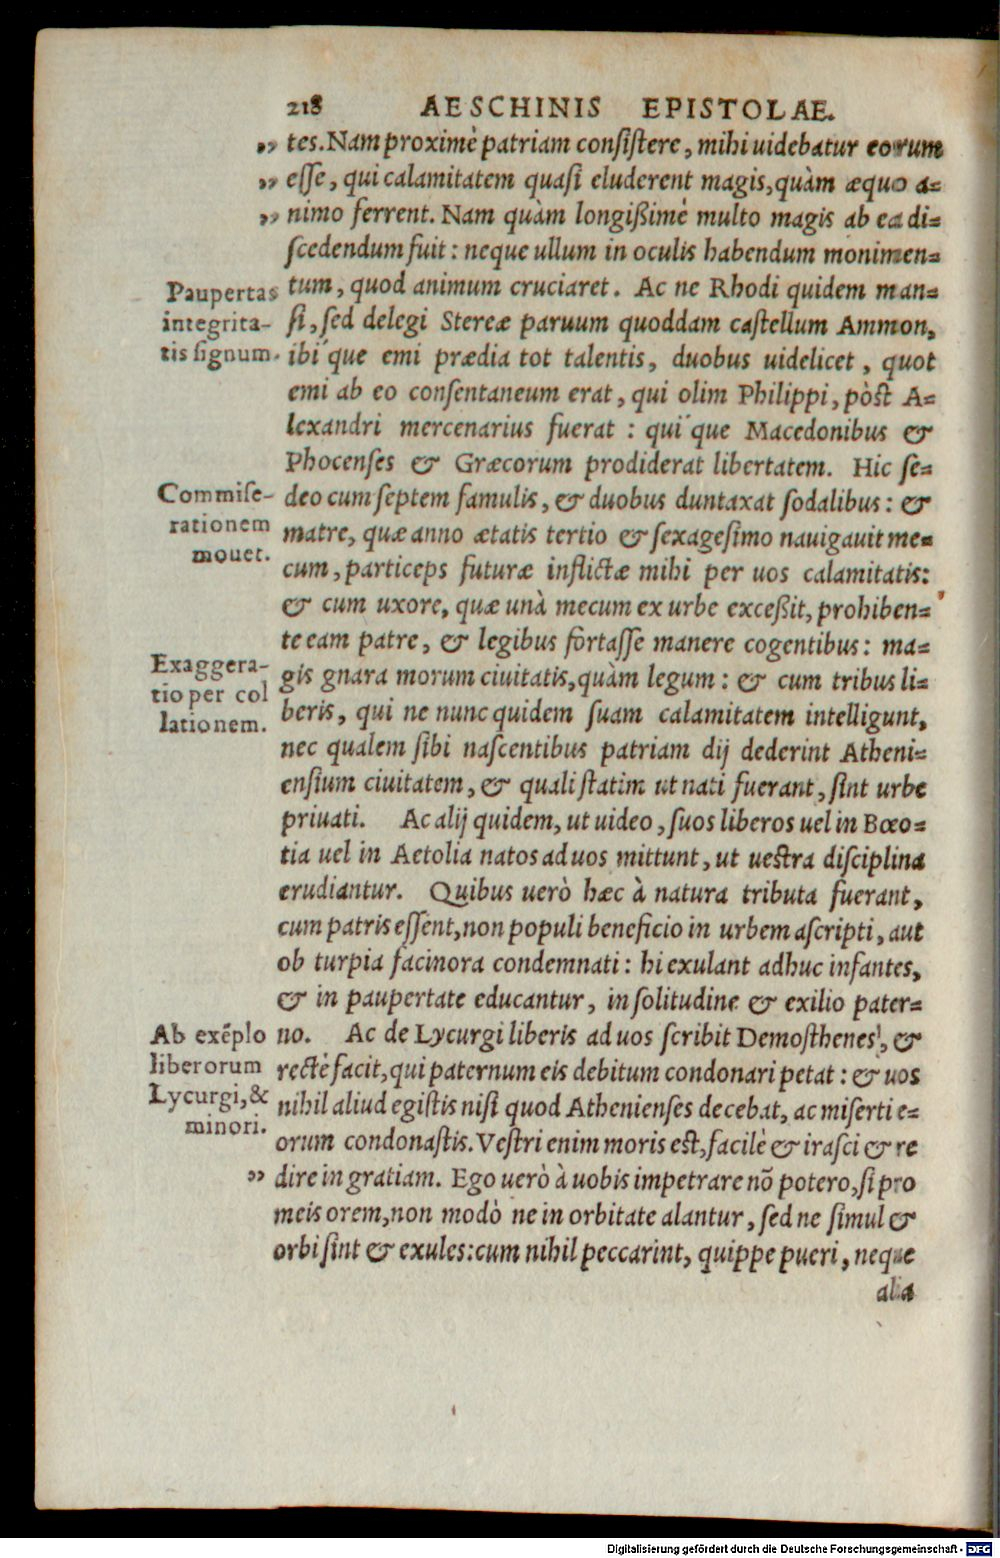 218 AESCHINIS EPISTOLAE.
„ tes. Nam proximè patriam consistere, mihi uidebatur eorum
„ esse, qui calamitatem quasi eluderent magis, quàm æquo a=
„ nimo ferrent. Nam quàm longißimè multo magis ab ea di=
scedendum fuit: neque ullum in oculis habendum monimen=
tum, quod animum cruciaret. Ac ne Rhodi quidem man=
si, sed delegi Stereæ paruum quoddam castellum Ammon,
ibi´que emi prædia tot talentis, duobus uidelicet, quot
emi ab eo consentaneum erat, qui olim Philippi, pòst A=
lexandri mercenarius fuerat: qui´que Macedonibus &
Phocenses & Græcorum prodiderat libertatem. Hic se=
deo cum septem famulis, & duobus duntaxat sodalibus: &
matre, quæ anno ætatis tertio & sexagesimo nauigauit me=
cum, particeps futuræ inflictæ mihi per uos calamitatis:
& cum uxore, quæ unà mecum ex urbe exceßit, prohiben=
te eam patre, & legibus fortasse manere cogentibus: ma=
gis gnara morum ciuitatis, quàm legum: & cum tribus li=
beris, qui ne nunc quidem suam calamitatem intelligunt,
nec qualem sibi nascentibus patriam dij dederint Atheni=
ensium ciuitatem, & quali statim ut nati fuerant, sint urbe
priuati. Ac alij quidem, ut uideo, suos liberos uel in Bœo=
tia uel in Aetolia natos ad uos mittunt, ut uestra disciplina
erudiantur. Quibus uerò hæc à natura tributa fuerant,
cum patris essent, non populi beneficio in urbem ascripti, aut
ob turpia facinora condemnati: hi exulant adhuc infantes,
& in paupertate educantur, in solitudine & exilio pater=
no. Ac de Lycurgi liberis ad uos scribit Demosthenes, &
rectè facit, qui paternum eis debitum condonari petat: & uos
nihil aliud egistis nisi quod Athenienses decebat, ac miserti e=
orum condonastis. Vestri enim moris est, facilè & irasci & re
„ dire in gratiam. Ego uerò à uobis impetrare nõ potero, si pro
meis orem, non modò ne in orbitate alantur, sed ne simul &
orbi sint & exules: cum nihil peccarint, quippe pueri, neque
alia
Paupertas
integrita-
tis signum.
Commise-
rationem
mouet.
Exaggera-
tio per col
lationem.
Ab exẽplo
liberorum
Lycurgi, &
minori.
Digitalisierung gefördert durch die Deutsche Forschungsgemeinschaft - DFG